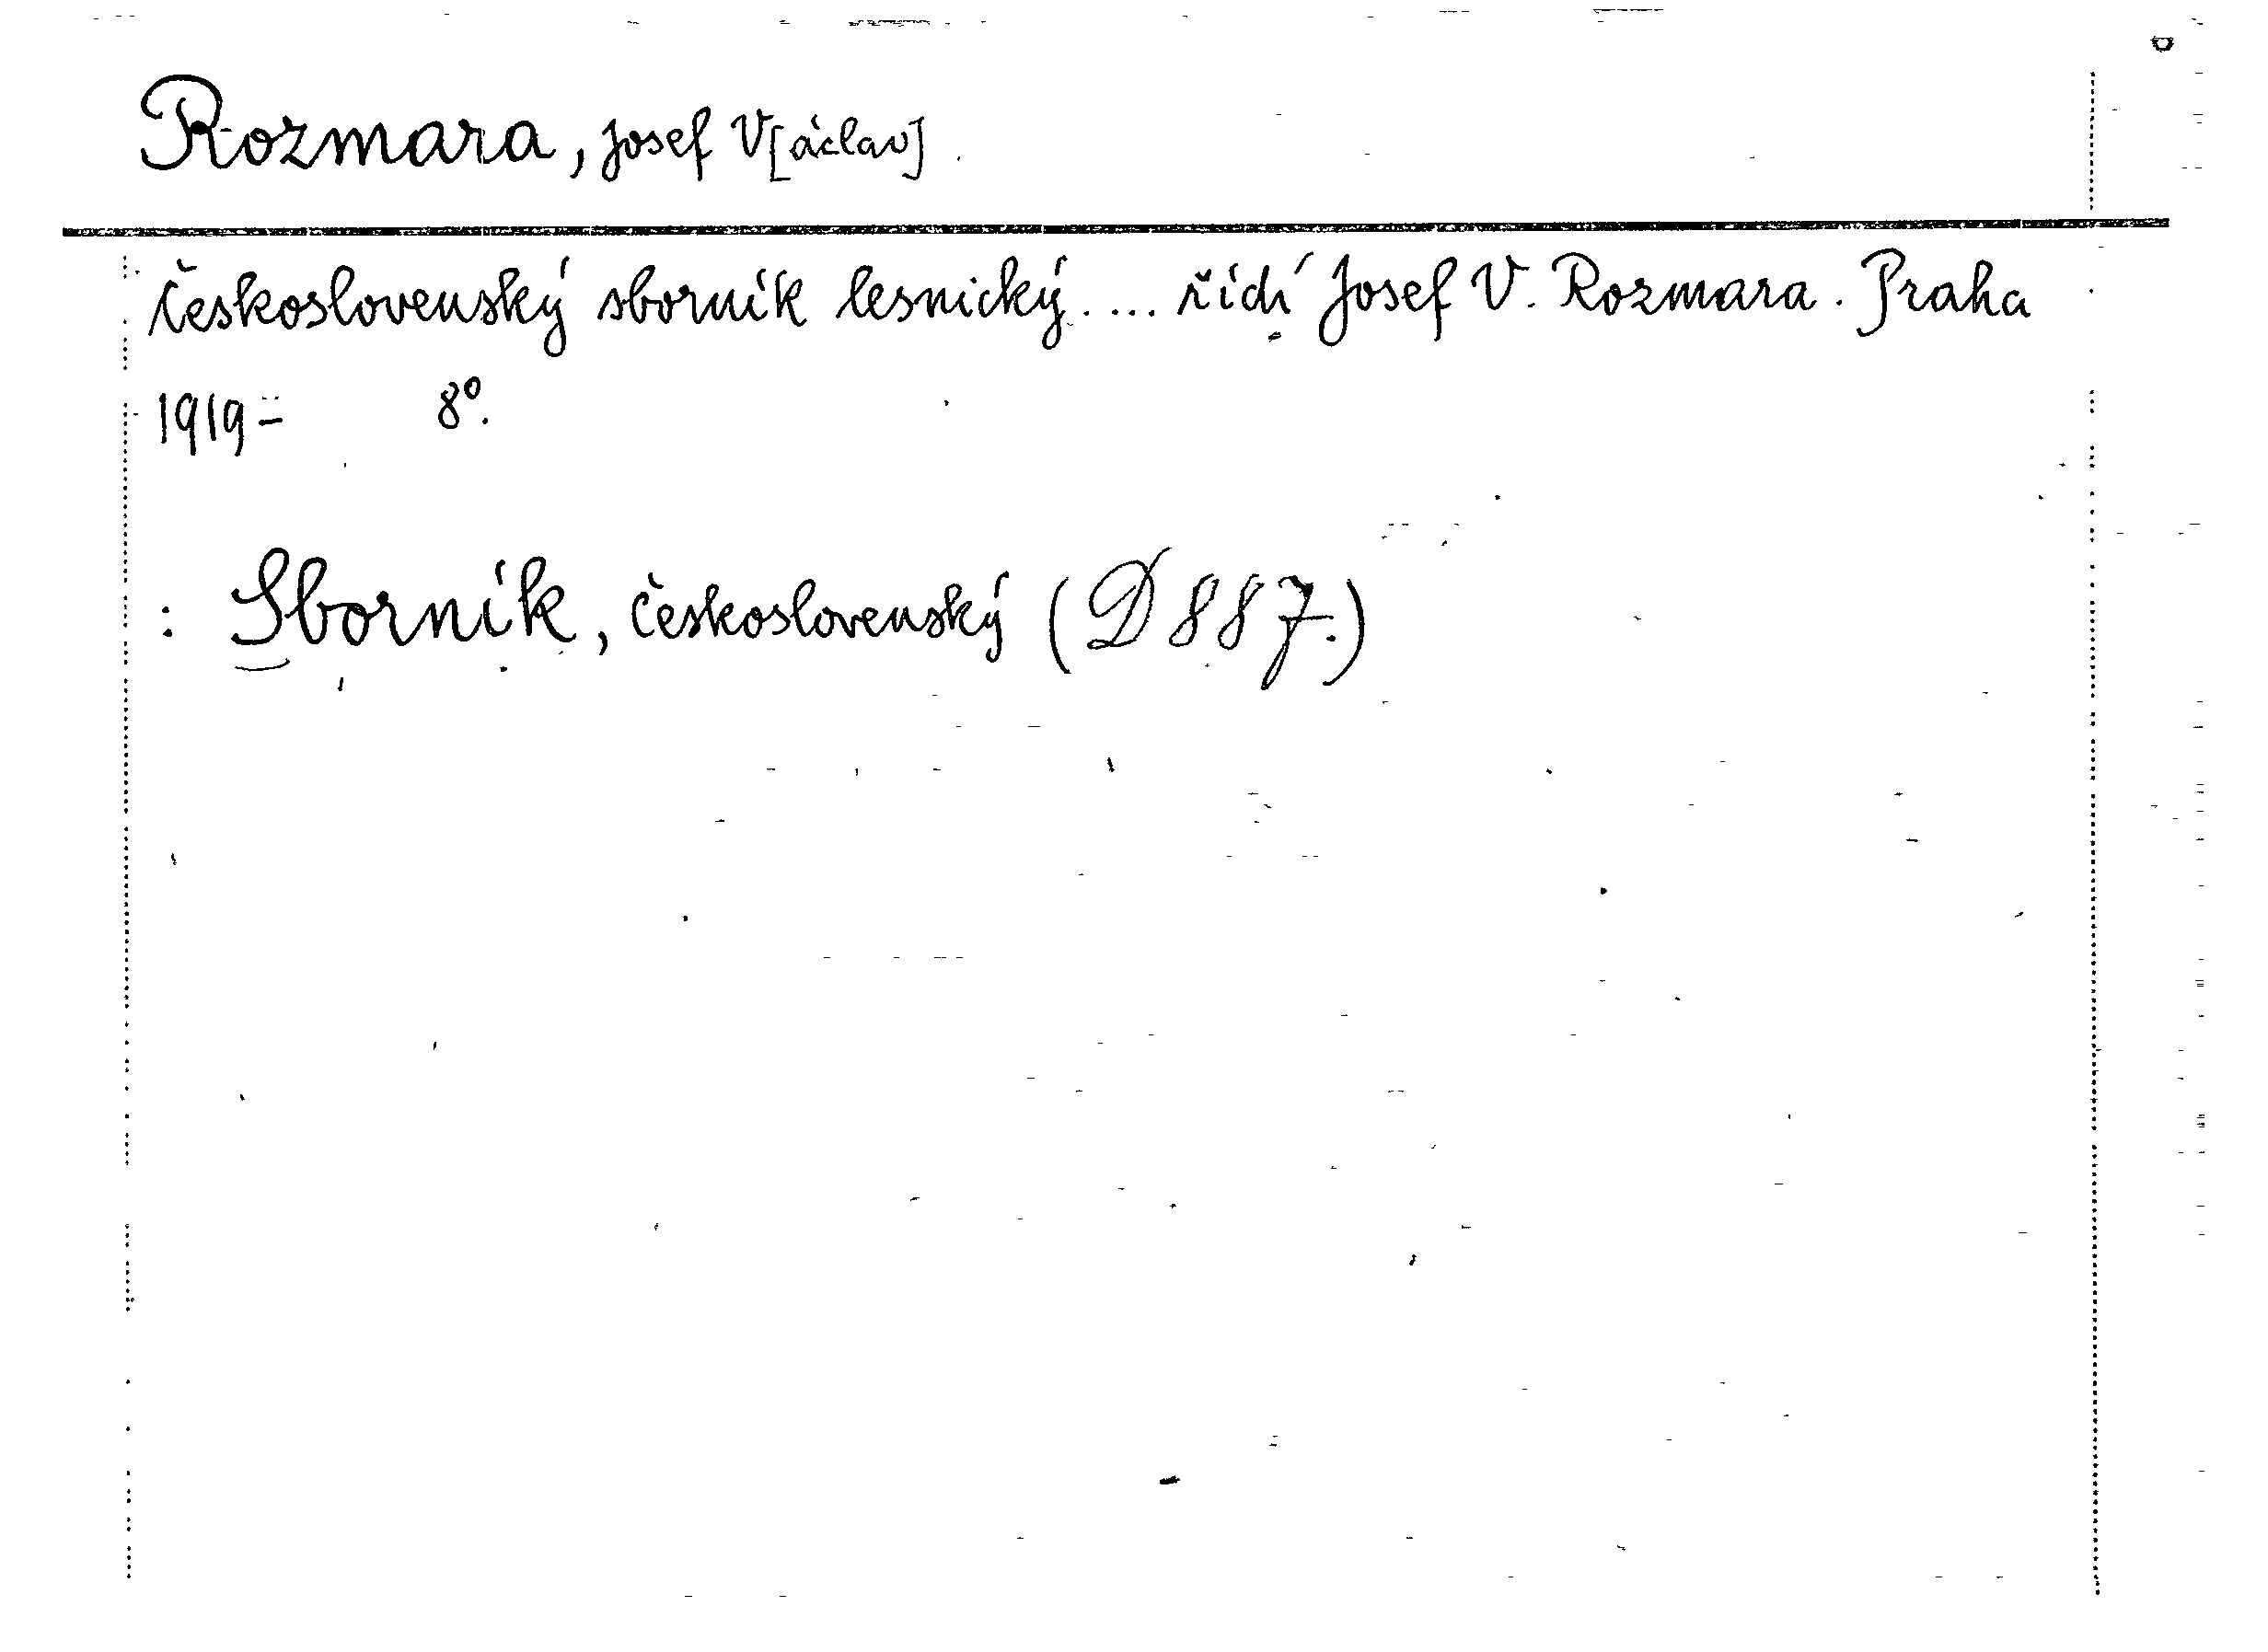 Rozmara, Josef V[áclav]
Československý sborník lesnický.... řídí Josef V. Rozmara. Praha
1919- 8°.
: Sborník, československý (D 887.)